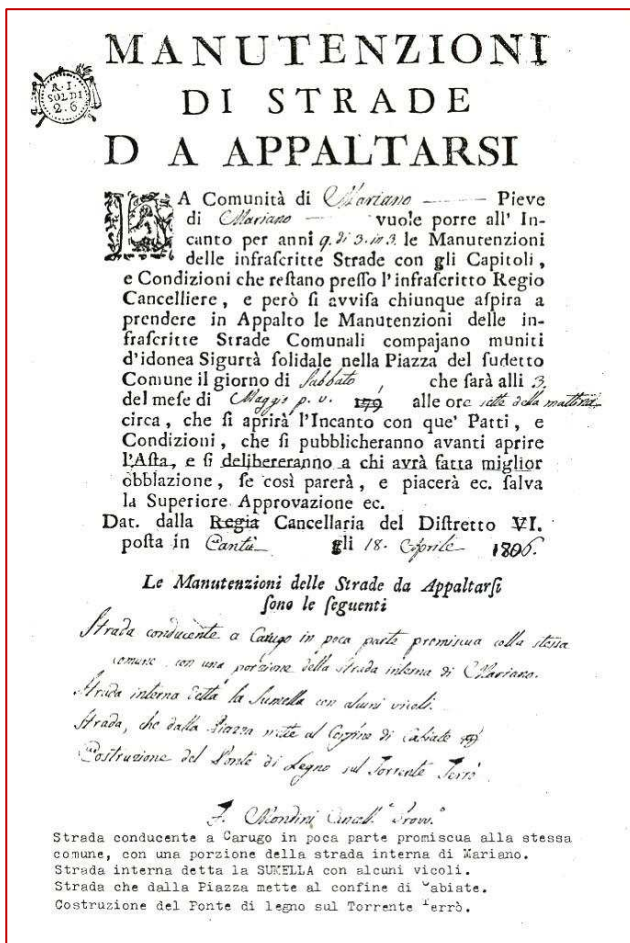 MANUTENZIONI
DI STRADE
DA APPALTARSI
R. I.
SOLDI
2.6
LA Comunità di Mariano Pieve
di Mariano vuole porre all' In-
canto per anni 9. di 3. in 3. le Manutenzioni
delle infraſcritte Strade con gli Capitoli,
e Condizioni che reſtano preſſo l'infraſcritto Regio
Cancelliere, e però ſi avviſa chiunque aſpira a
prendere in Appalto le Manutenzioni delle in-
fraſcritte Strade Comunali compajano muniti
d'idonea Sigurtà ſolidale nella Piazza del ſudetto
Comune il giorno di Sabbato, che ſarà alli 3.
del meſe di Maggio p. v. 179 alle ore sette della mattina
circa, che ſi aprirà l'Incanto con que' Patti, e
Condizioni, che ſi pubblicheranno avanti aprire
l'Aſta, e ſi delibereranno a chi avrà fatta miglior
obblazione, ſe così parerà, e piacerà ec. ſalva
la Superiore Approvazione ec.
Dat. dalla Regia Cancellaria del Diſtretto VI.
poſta in Cantù gli 18. Aprile 1806.
Le Manutenzioni delle Strade da Appaltarſi
ſono le ſeguenti
Strada conducente a Carugo in poca parte promiscua colla stessa
comune, con una porzione della strada interna di Mariano.
Strada interna detta la Sumella con alcuni vicoli.
Strada, che dalla Piazza mette al Confine di Cabiate
Costruzione del Ponte di Legno sul Torrente Terrò
F. Mondini Cancell.e Provv.
Strada conducente a Carugo in poca parte promiscua alla stessa
comune, con una porzione della strada interna di Mariano.
Strada interna detta la SUMELLA con alcuni vicoli.
Strada che dalla Piazza mette al confine di Cabiate.
Costruzione del Ponte di legno sul Torrente Terrò.